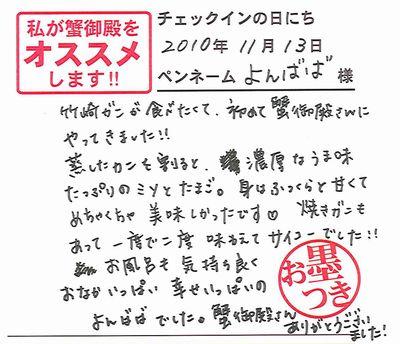 私が蟹御殿を
オススメ
します!!
チェックインの日にち
2010年 11月 13日
ペンネーム よんばば 様
竹崎ガニが食べたくて、初めて蟹御殿さんに
やってきました!!
蒸したカニを割ると、濃厚なうま味
たっぷりのミソとたまご。身はふっくらと甘くて
めちゃくちゃ美味しかったです♡ 焼きガニも
あって一度で二度味わえてサイコーでした!!
お風呂も気持ち良く
おなかいっぱい 幸せいっぱいの
よんばばでした。蟹御殿さん
ありがとうござい
ました!
お墨つき